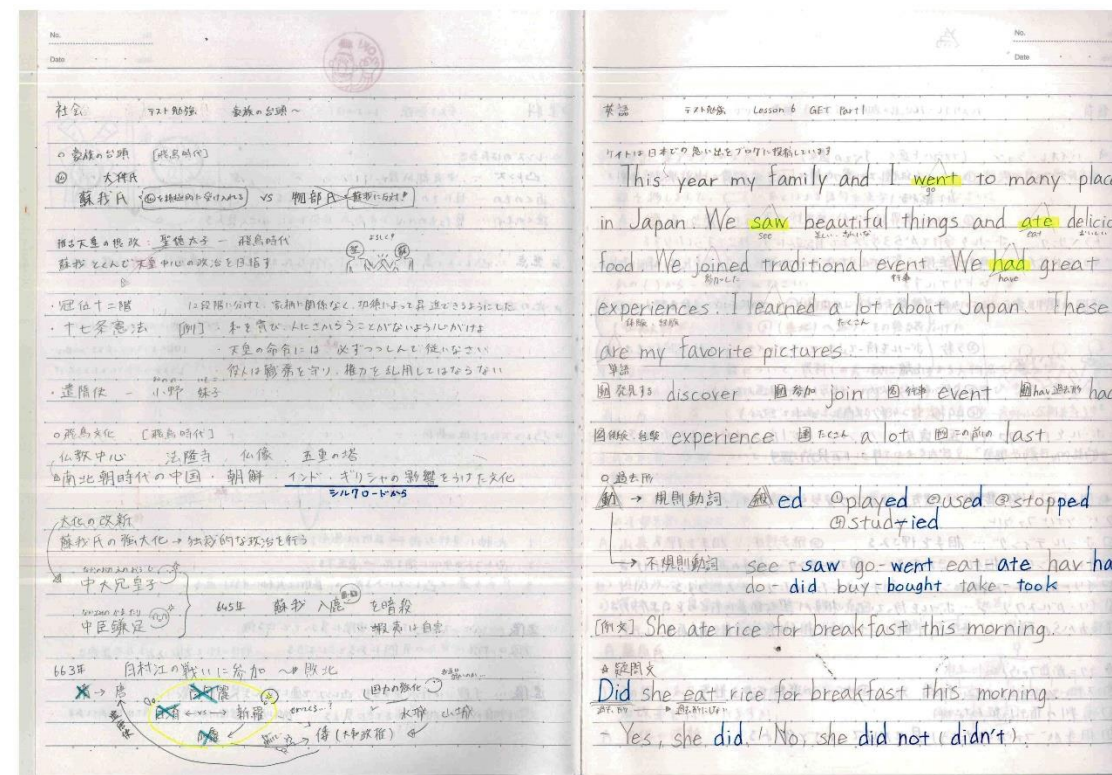 No.
Date
社会 テスト勉強 豪族の台頭〜
○豪族の台頭 [飛鳥時代]
大和氏
蘇我氏 を積極的に受け入れる VS 物部氏 蘇我に反対!
推古天皇の摂政 聖徳太子 ー 飛鳥時代
蘇我とくんで天皇中心の政治を目指す
・冠位十二階 12段階に分けて、家柄に関係なく、功績によって昇進できるようにした
・十七条憲法 [例] 和を貴び、人にさからうことがないよう心がけよ
・天皇の命令には必ずつつしんで従いなさい
・役人は職業を守り、権力を乱用してはならない
・遣隋使 ー 小野 妹子
○飛鳥文化 [飛鳥時代]
仏教中心 法隆寺 仏像 五重の塔
南北朝時代の中国・朝鮮・インド・ギリシャの影響をうけた文化
シルクロードから
大化の改新
蘇我氏の強大化→独裁的な政治を行う
中大兄皇子
中臣鎌足
645年 蘇我 入鹿 を暗殺
蝦夷は自害
663年 白村江の戦いに参加 → 敗北
唐
新羅
国力の強化
水城 山城
倭(大和政権)
No.
Date
英語 テスト勉強 Lesson 6 GET Part1
ケイトは日本での思い出をブログに投稿しています
This year my family and I went to many plac
go
in Japan. We saw beautiful things and ate delicio
see 美しい・きれいな eat おいしい
food. We joined traditional event. We had great
参加した 行事 have
experiences. I learned a lot about Japan. These
体験 経験 たくさん
are my favorite pictures.
単語
発見する discover 参加 join 行事 event hav 過去形 had
体験・経験 experience たくさん a lot この前の last
○過去形
動 → 規則動詞 ed ①played ②used ③stopped
④studied
→ 不規則動詞 see - saw go-went eat-ate hav-ha
do-did buy-bought take-took
[例文] She ate rice for breakfast this morning.
☆疑問文
Did she eat rice for breakfast this morning
Yes, she did. / No, she did not (didn't)